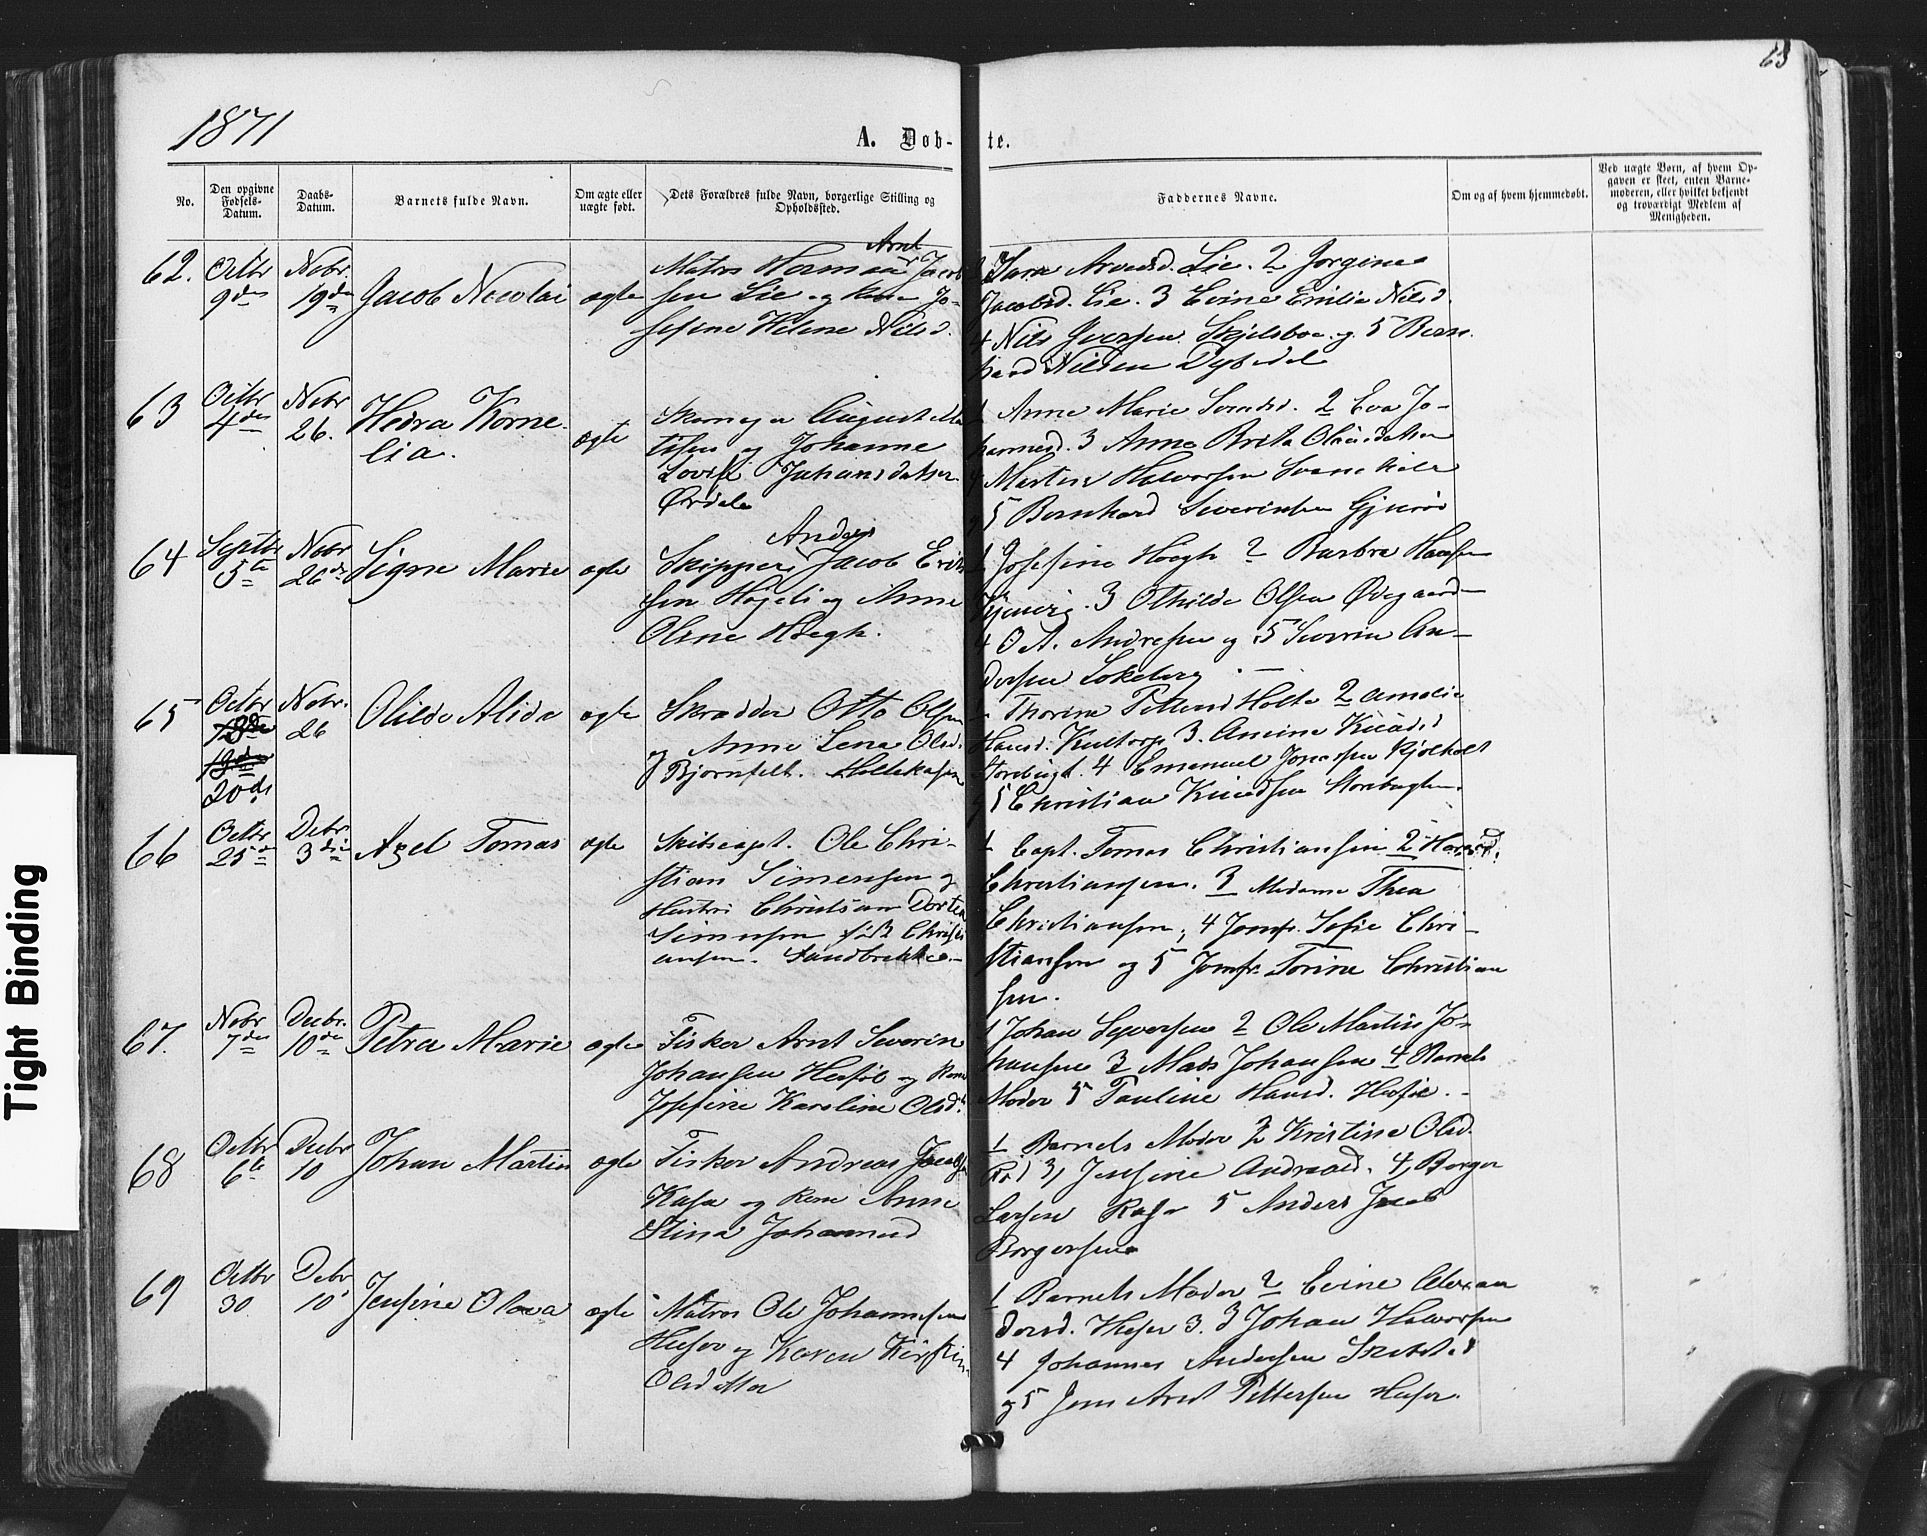 63
1871
A. Døb-te.
No.
Den opgivne Fødsels-Datum.
Daabs-Datum.
Barnets fulde Navn.
Om ægte eller uægte født.
Dets Forældres fulde Navn, borgerlige Stilling og Opholdssted.
Faddernes Navne.
Om og af hvem hjemmedøbt.
Ved uægte Børn, af hvem Opgaven er skeet, enten Barnemoderen, eller hvilket bekjendt og troværdigt Medlem af Menigheden.
62. Octbr 9de Novbr. 19de Jacob Nicolai ægte
Arnt
Matros Herman Jacob-
sen Lie og Kone Jo-
sefine Helene Nilsd.
Arvesd. Lie. 2 Jorgine
Jacobsd. Lie. 3 Evine Emilie Nilsd.
4 Nils Iversen Skjelsboe og 5 Bern-
hard Nilsen Dybedal
63 Octbr 4de Novbr 26. Hedva Korne-
lia. ægte
August Ma-
tisen og Johanne
Lovise Johansdatter
Ørdale
1 Anne Marie 2 Eva Jo-
hannesd. 3 Anne Brita Olausdatter
4 Martin Halvorsen Svanekile
5 Bernhard Severinsen
64 Septbr 5te Novbr 26de Signe Marie ægte
Anders
Skipper Jacob Erik-
sen Høgeli og Anne
Olene Høegh.
1 Josefine Høegh 2 Barbra Hansen
3 Othilde Olsen Ødegaard
4 O A. Andresen og 5 Severin An-
dersen Lökeberg
65 Octbr 18de 19de 20de Novbr. 26 Olilde Alide ægte
Skrædder Otto Olsen
og Anne Lena Olsd.
Bjørnfelt. Holtekasen
1 Thorine Pettersd Holte 2 Amalie
Hansd. 3. Amine
4 Emanuel Jonassen Kjølholt
5 Christian Knudsen Storebugten.
66 Octbr 25de Debr. 3die Axel Tomas ægte
Skibscapt. Ole Chri-
stian Simensen og
Hustru Christiane Dortea
Simensen født Christi-
ansen. Sandbrekke.
1 Capt. Tomas Christiansen 2
Christiansen. 3 Madame Thea
Christiansen, 4 Jomfr. Sofie Chri-
stiansen og 5 Jomfr. Torine Christian
sen.
67. Novbr 7de Decbr. 10de Petra Marie ægte
Fisker Arnt Severin
Johansen Hesføe og Kone
Josefine Karoline Olsd.
1 Johan Syversen 2 Ole Martin Jo-
hansen 3 Mads Johansen 4 Barnets
Moder 5 Pauline Hansd. Hesføe.
68 Octbr 6te Decbr 10 Johan Martin ægte
Fisker Andreas Jacobsen
og Kone Anne
Stina Johannesd
1 Barnets Moder 2 Kristine Olsd.
3) Josefine Andreasd. 4, Borger
Larsen 5 Anders Jacob
Borgersen
69 Octbr 30 Debr 10 Josefine Olava ægte
Matros Ole Johannesen
Huser og Karen Kirstin
Olsdatter
1 Barnets Moder 2 Evine Alexan
dersd. Huser 3. 3 Johan Halvorsen
4 Johannes Andersen
og 5 Jens Arnt Pettersen Huser.
Tight Binding